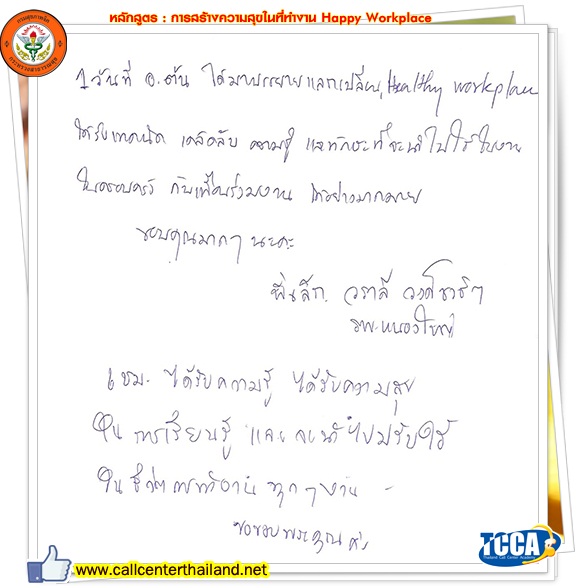 หลักสูตร : การสร้างความสุขในที่ทำงาน Happy Workplace
กรมสุขภาพจิต
กระทรวงสาธารณสุข
1 วันที่ อ.ต้น ได้มาบรรยายแลกเปลี่ยน Healthy workplace
ได้รับเทคนิค เคล็ดลับ ความรู้ และทักษะที่จะนำไปใช้ในงาน
ในครอบครัว กับเพื่อนร่วมงาน ได้อย่างมากมาย
ขอบคุณมากๆ นะคะ
วราลี
รพ.หนองใหญ่
6 ชม. ได้รับความรู้ ได้รับความสุข
ใน การเรียนรู้ และจะนำไปปรับใช้
ใน ชีวิตการทำงาน ทุกๆ งาน
ขอขอบพระคุณค่ะ
TCCA
Thailand Call Center Academy
www.callcenterthailand.net